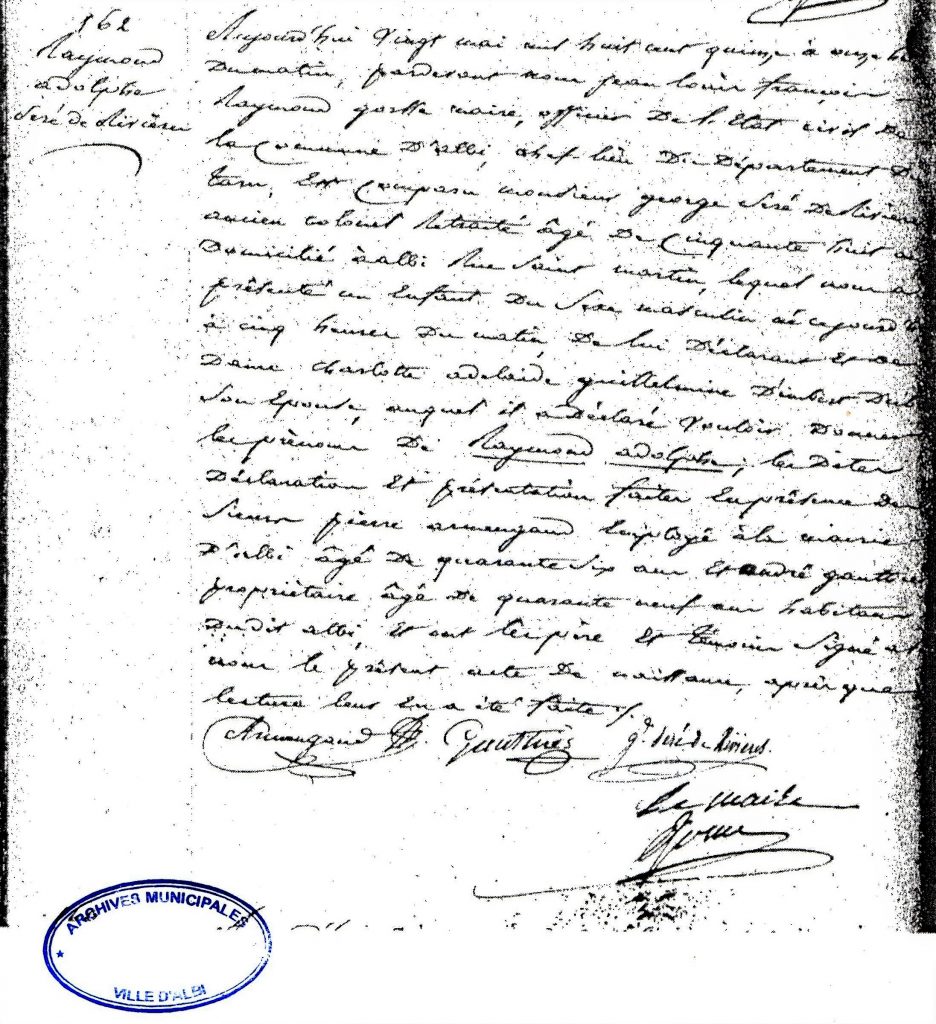 162
Raymond
adolphe
Seré de Rivieres
Aujourd'hui Vingt mai mil huit cent quinze à onze he
Du matin, pardevant nous jean louis françois
Raymond gorsse maire, officier De l'Etat civil De
la Commune D'albi, chef-lieu Du Département Du
tarn, Est Comparu monsieur george Seré De Riviere
ancien colonel Retraité âgé De Cinquante huit an
Domicilié à albi Rue Saint martin, lequel nous a
présenté un Enfant Du Sexe masculin né cejourd'h
à cinq heures Du matin De lui Déclarant Et De
Dame charlotte adelaïde guillelmine D'imbert Dub
Son Epouse, auquel il a Déclaré Vouloir Donner
les prénoms De Raymond adolphe; les Dites
Déclaration Et présentation faites En présence De
Sieurs pierre armengaud Employé à la mairie
D'albi âgé De quarante Six ans Et andré gauthie
propriétaire âgé De quarante neuf ans habitans
Dudit albi, Et ont les père Et témoins Signé a
nous le présent acte De naissance, après que
lecture leur En a été faite
Armengaud Gauthiés g. Seré de Rivieres.
Le maire
ARCHIVES MUNICIPALES
VILLE D'ALBI